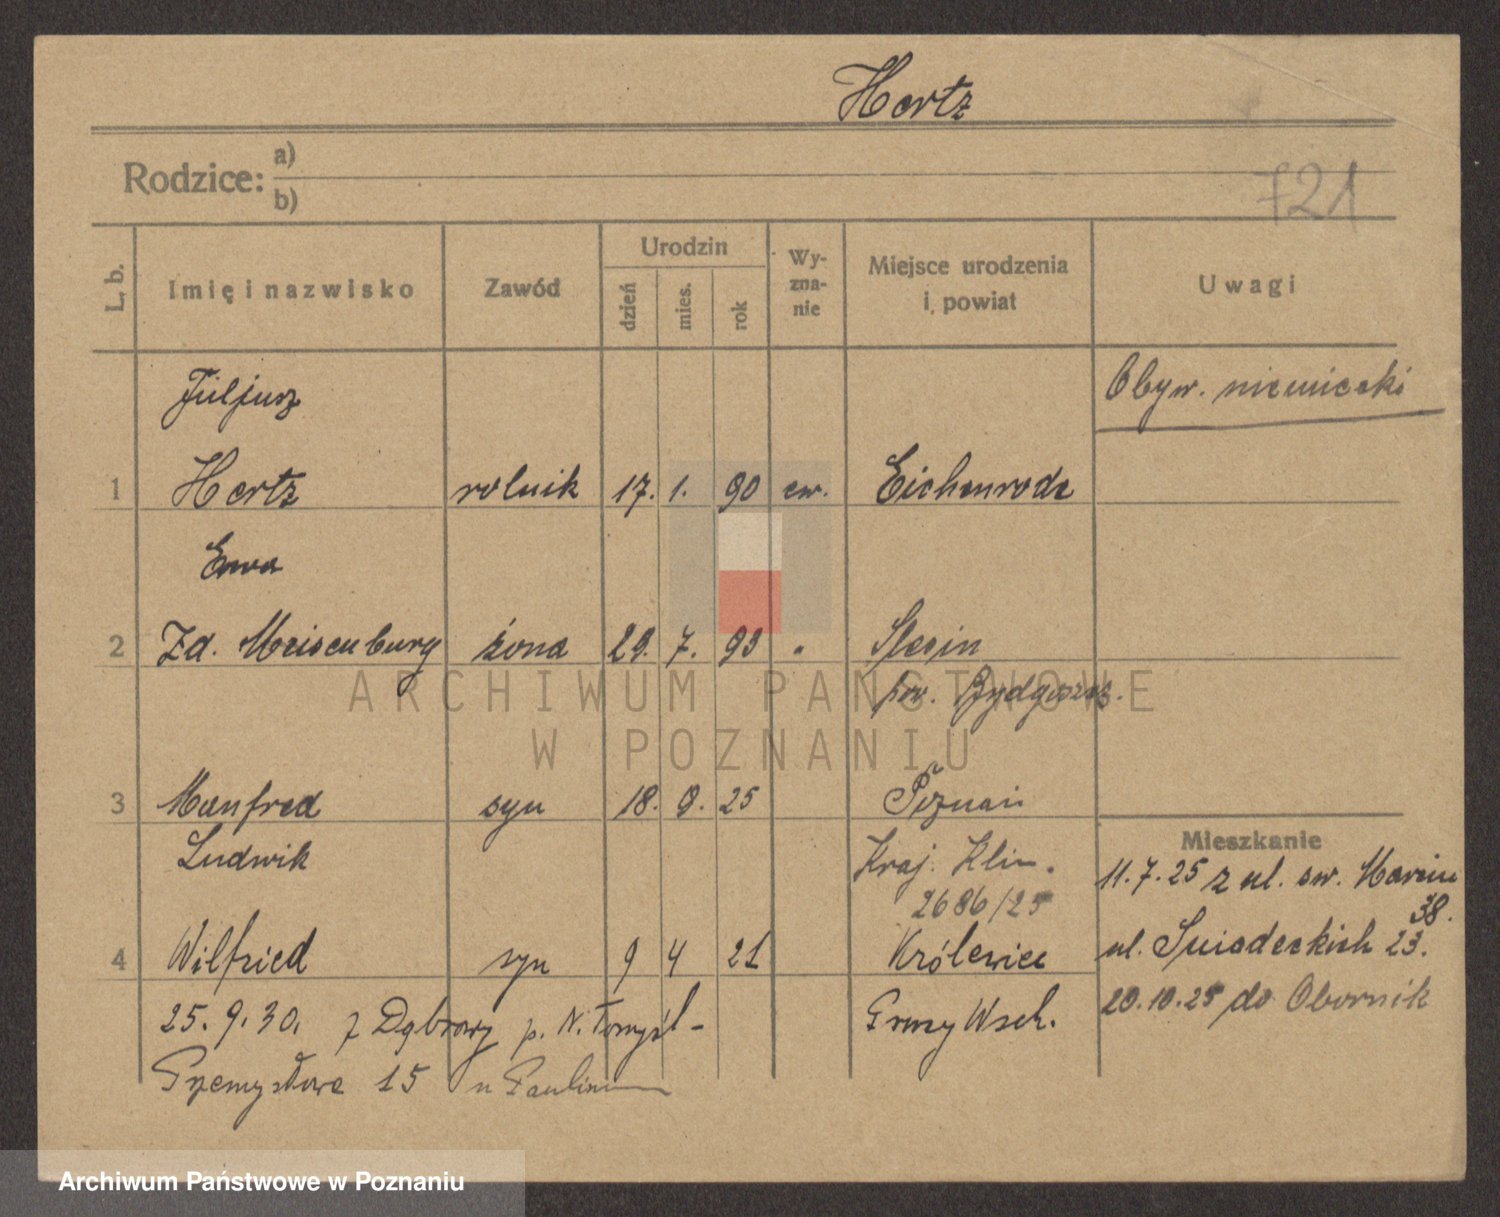 Hertz
Rodzice: a)
b)
721
L. b. Imię i nazwisko Zawód Urodzin dzień mies. rok Wy-zna-nie Miejsce urodzenia i powiat Uwagi
Juljusz
Obyw. niemiecki
1 Hertz rolnik 17. 1. 90 ew. Eichenrode
Ewa
2 Zd. Meisenburg żona 29. 7. 93 " Slesin
pow. Bydgoszcz.
ARCHIWUM PAŃSTWOWE
W POZNANIU
3 Manfred syn 18. 9. 25 Poznań
Mieszkanie
Ludwik Kraj. Klin. 11.7.25 z ul. św. Marcin
2686/25 38.
4 Wilfried syn 9 4 21 Królewiec ul. Śniadeckich 23.
20.10.25 do Obornik
25.9.30. z Dąbrowy p. N. Tomyśl - Prusy Wsch.
Przemysłowa 15
Archiwum Państwowe w Poznaniu